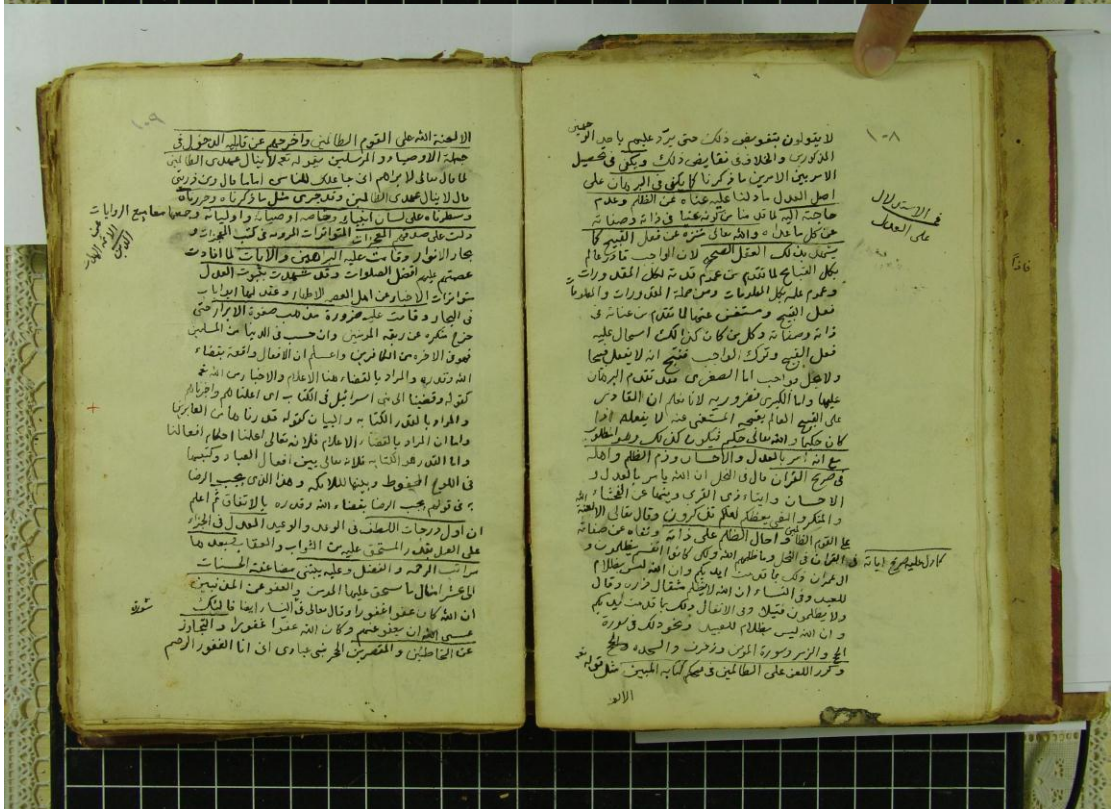 ١٠٨
لا يقولون بنقيض ذلك حتى يرد عليهم باحد الوجهين
المذكورين والخلاف في نقايض ذلك ويكفي في تحصيل
الامر بين الامرين ما ذكرنا كما يكفي في البرهان على
اصل العدل ما دلنا عليه غناه عن الظلم وعدم
حاجته اليه لما قدمنا من كونه غنيا في ذاته وصفاته
عن كل ما عداه والله تعالى منزه عن فعل القبيح كما
يشهد بذلك العقل الصحيح لان الواجب قادر عالم
بكل القبايح لما تقدم من عموم قدرته لكل المقدورات
وعموم علمه بكل المعلومات ومن جملة المقدورات والمعلومات
فعل القبيح ومستغن عنها لما تقدم من غناه في
ذاته وصفاته وكل من كان كذلك استحال عليه
فعل القبيح وترك الواجب فنتج انه لا يفعل قبيحا
ولا يخل بواجب اما الصغرى فقد تقدم البرهان
عليها واما الكبرى فضرورية لانا نعلم ان القادر
على القبيح العالم بقبحه المستغني عنه لا يفعله اذا
كان حكيما والله تعالى حكيم فيكون كذلك وهو المطلوب
مع انه امر بالعدل والاحسان وذم الظلم واهله
في صريح القران قال في النحل ان الله يامر بالعدل و
الاحسان وايتاء ذي القربى وينهى عن الفحشاء
والمنكر والبغي يعظكم لعلكم تذكرون وقال تعالى الا لعنة الله
على القوم الظالمين واحال الظلم على ذاته ونفاه عن صفاته
في القران في النحل وما ظلمهم الله ولكن كانوا انفسهم يظلمون و
ال عمران ذلك بما قدمت ايديكم وان الله ليس بظلام
للعبيد وفي النساء ان الله لا يظلم مثقال ذرة وقال
ولا يظلمون فتيلا وفي الانفال ذلك بما قدمت ايديكم
وان الله ليس بظلام للعبيد ونحو ذلك في سورة
الحج والزمر وسورة المؤمن وزخرف والسجدة والحج
وكرر اللعن على الظالمين في محكم كتابه المبين مثل قوله تعالى
الا لو
في الاستدلال
على العدل
كما دل عليه صريح اياته
١٠٩
الا لعنة الله على القوم الظالمين واخرجهم عن قابلية الدخول في
جملة الاوصياء والمرسلين بقوله تعالى لا ينال عهدي الظالمين
لما قال تعالى لابراهيم اني جاعلك للناس اماما قال ومن ذريتي
قال لا ينال عهدي الظالمين وقد جرى مثل ما ذكرناه وحررناه
وسطرناه على لسان انبيائه وخاصة اوصيائه واوليائه وجمعها مجاميع الروايات
عن الائمة الهداة
دلت على صدقهم المعجزات المتواترات المروية في كتب المعجزات و
بحار الانوار وقامت عليه البراهين والايات لما افادت
عصمتهم عليهم افضل الصلوات وقد شهدت بثبوت العدل
متواترات الاخبار عن اهل العصمة الاطهار وعقد لها ابوابا
في البحار وقامت عليه ضرورة مذهب صفوة الابرار حتى
خرج منكره عن ربقة المؤمنين وان حسب في الدنيا من المسلمين
فهو في الاخرة من الكافرين واعلم ان الافعال واقعة بقضاء
الله وقدره والمراد بالقضاء هنا الاعلام والاخبار من الله تعالى
كقوله وقضينا الى بني اسرائيل في الكتاب اي اعلمناهم واخبرناهم
والمراد بالقدر الكتابة والبيان كقوله قدرناها من الغابرين
واما ان المراد بالقضاء الاعلام فلانه تعالى اعلمنا احكام افعالنا
واما القدر هو الكتابة فلانه تعالى بين افعال العباد وكتبها
في اللوح المحفوظ وبينها للملائكة وهذا الذي يجب الرضا
به في قولهم يجب الرضا بقضاء الله وقدره بالاتفاق ثم اعلم
ان اول درجات اللطف في الوعد والوعيد العدل في الجزاء
على العمل بقدر المستحق عليه من الثواب والعقاب وبعدها
مراتب الرحمة والفضل وعليه يبتني مضاعفة الحسنات
الى عشر امثال ما يستحق عليها المحسن والعفو عن المذنبين
ان الله كان عفوا غفورا وقال تعالى في النساء ايضا فاولئك
عسى الله ان يعفو عنهم وكان الله عفوا غفورا والتجاوز
عن الخاطئين والمقصرين الحجر نبئ عبادي اني انا الغفور الرحيم
سورة